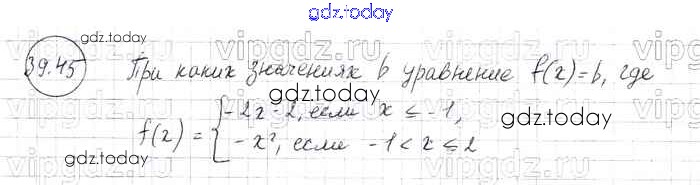 gdz.today
39.45 При каких значениях b уравнение f(x)=b, где
gdz.today
f(x) = { -2x-2, если x ≤ -1,
-x², если -1 < x ≤ 2
gdz.today
gdz.today
vipgdz.ru vipgdz.ru vipgdz.ru